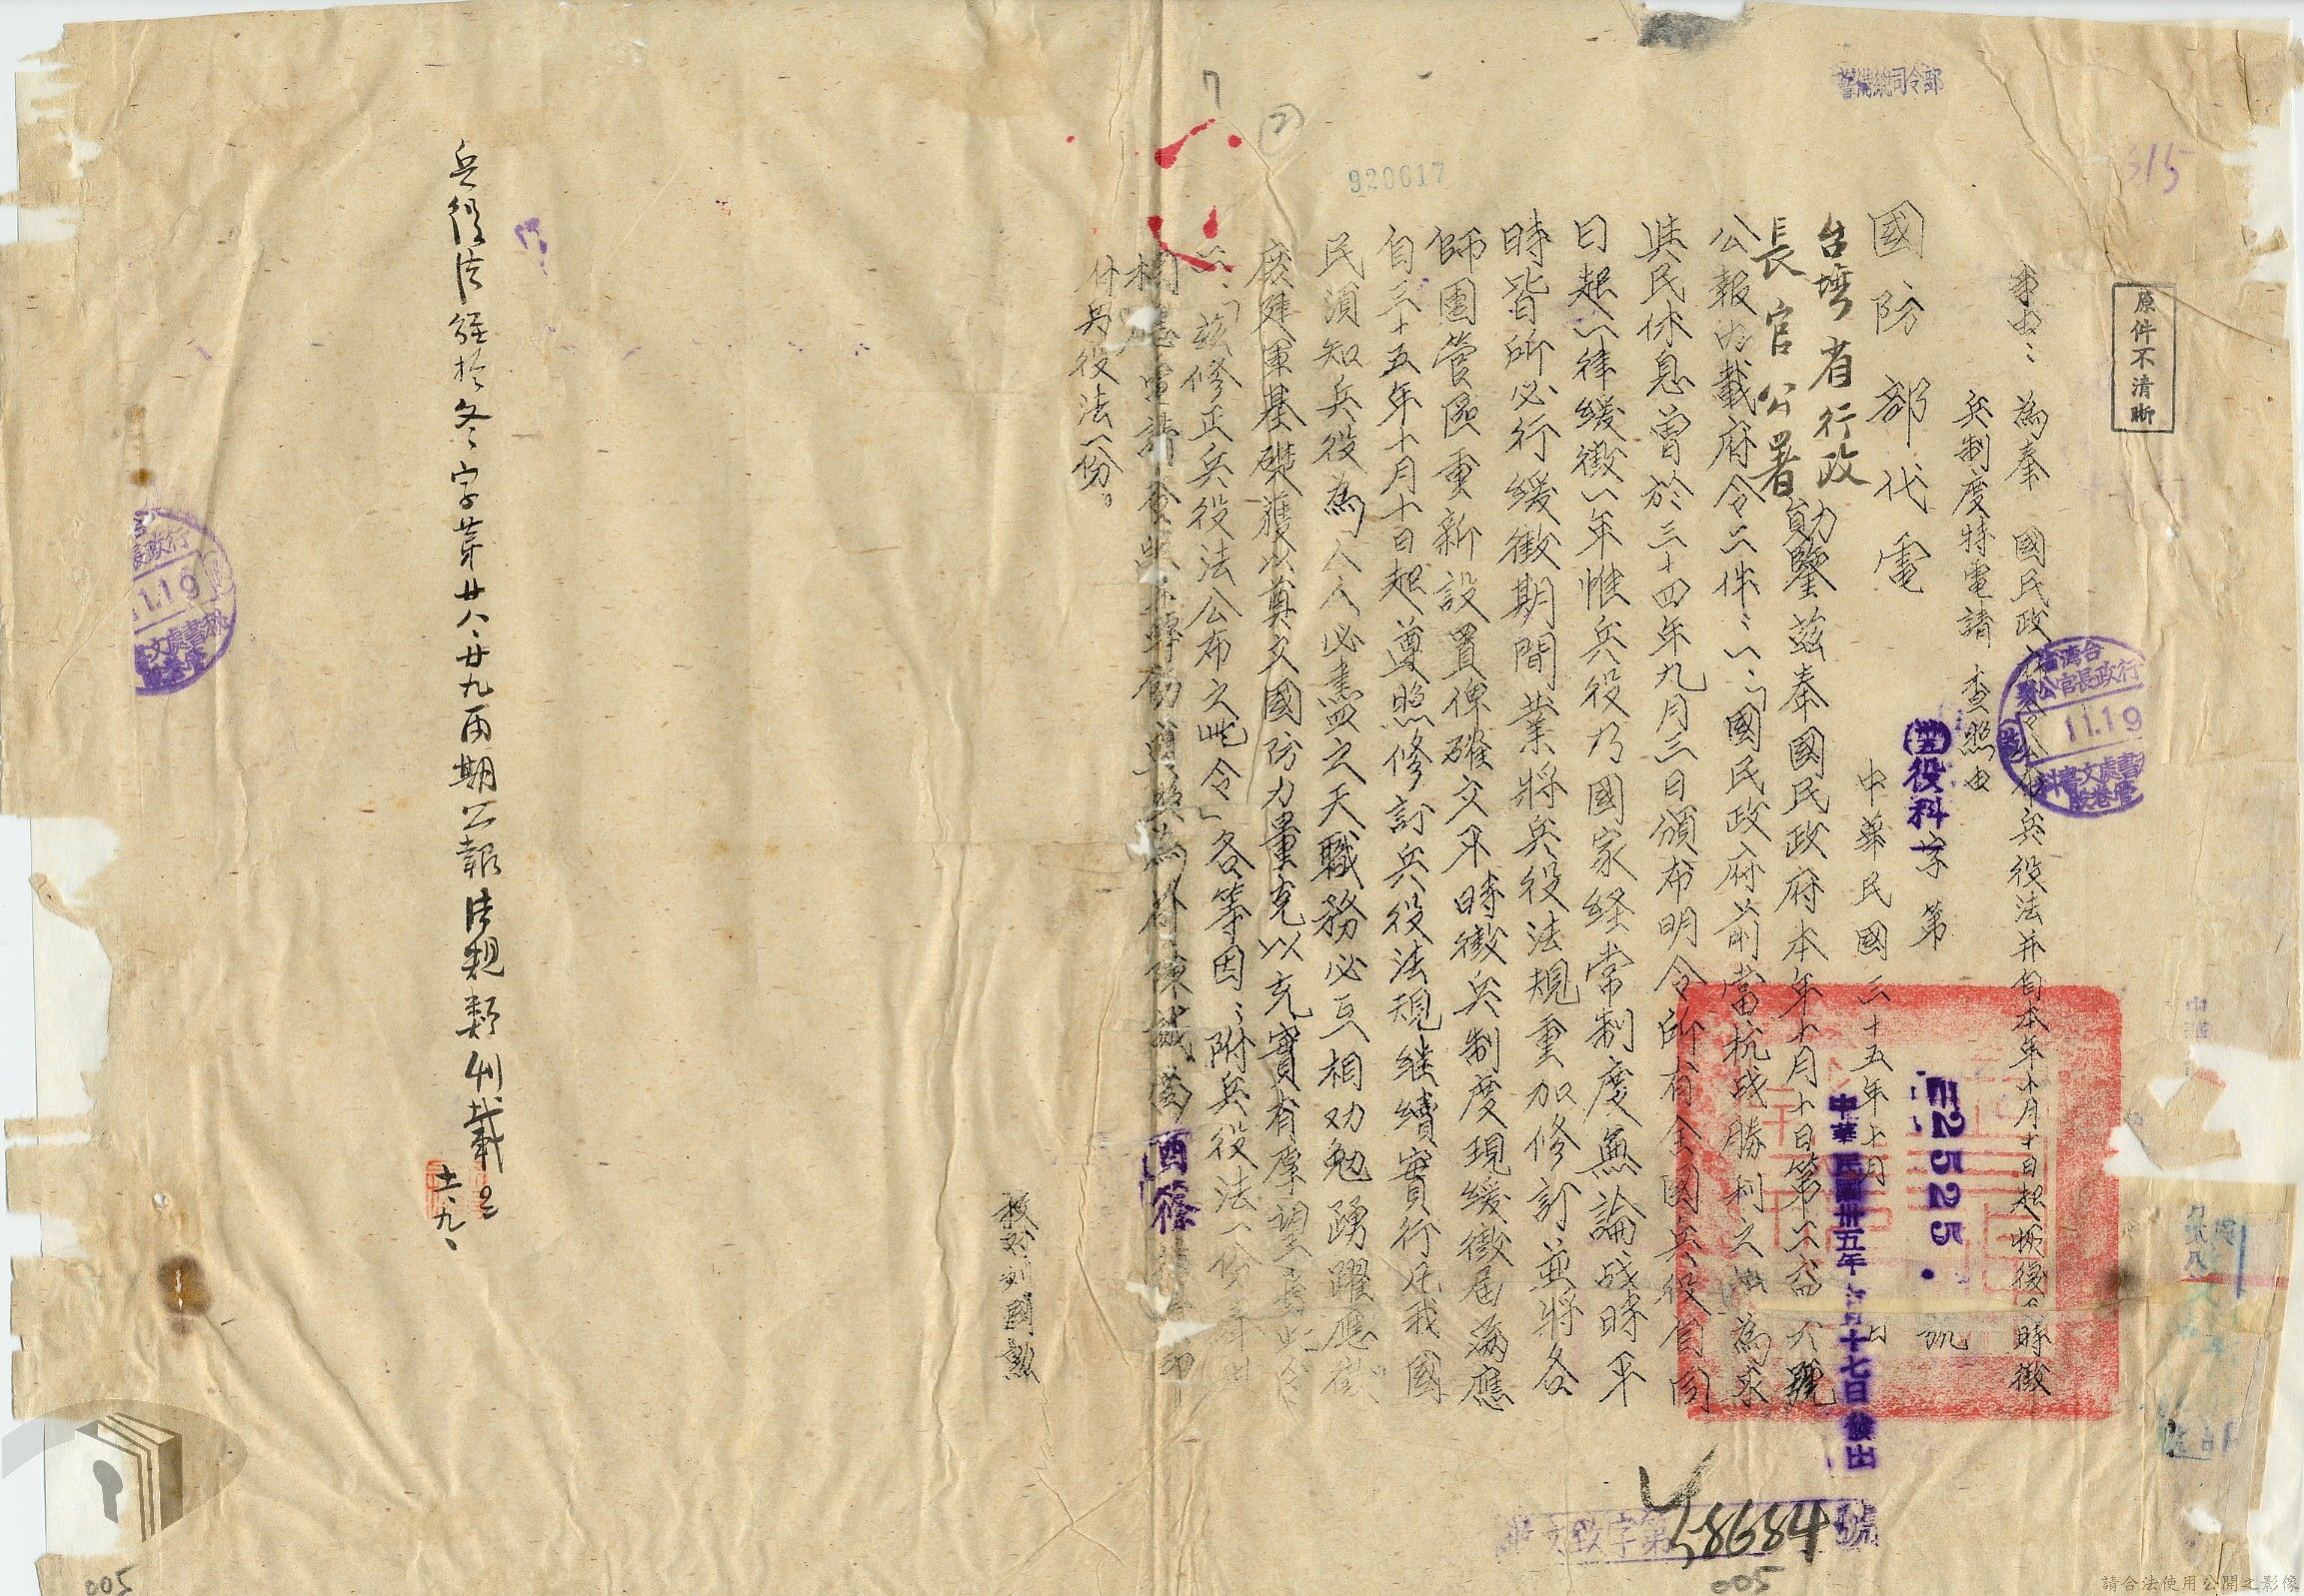 警備總司令部
615
原件不清晰
事由：為奉 國民政府 兵役法并自本年十月十日起恢復平時徵
兵制度特電請 查照由
台灣省行政長官公署
11.19
國防部代電
役科 字第 2525 號
中華民國三十五年十月 日
中華民國卅五年 月十七日發出
台灣省行政
長官公署
勛鑒茲奉國民政府本年十月十日第 號
公報內載府令二件：一、「國民政府前當抗战勝利之 為求
與民休息曾於三十四年九月三日頒布明令所有全國兵役自同
日起一律緩徵一年惟兵役乃國家経常制度無論战時平
時皆所必行緩徵期間業將兵役法規重加修訂並將各
師團管區重新設置俾確立平時徵兵制度現緩徵屆滿應
自三十五年十月十日起遵照修訂兵役法規继續實行凡我國
民須知兵役為人人必盡四之天職務必互相劝勉踴躍應徵
庶建軍基礎獲以奠立國防力量克以充實有厚望焉此令
二、「茲修正兵役法公布之此令」各等因：附兵役法一份奉此
相應電請查照並轉飭 酉篠 印
付兵役法一份。
校对 刘國勲
920617
(2)
兵役法經於冬字苐廿八、廿九兩期公報法規類刊載
十一、九、
11.19
收文致字第 58684 號
005
005
請合法使用公開之影像